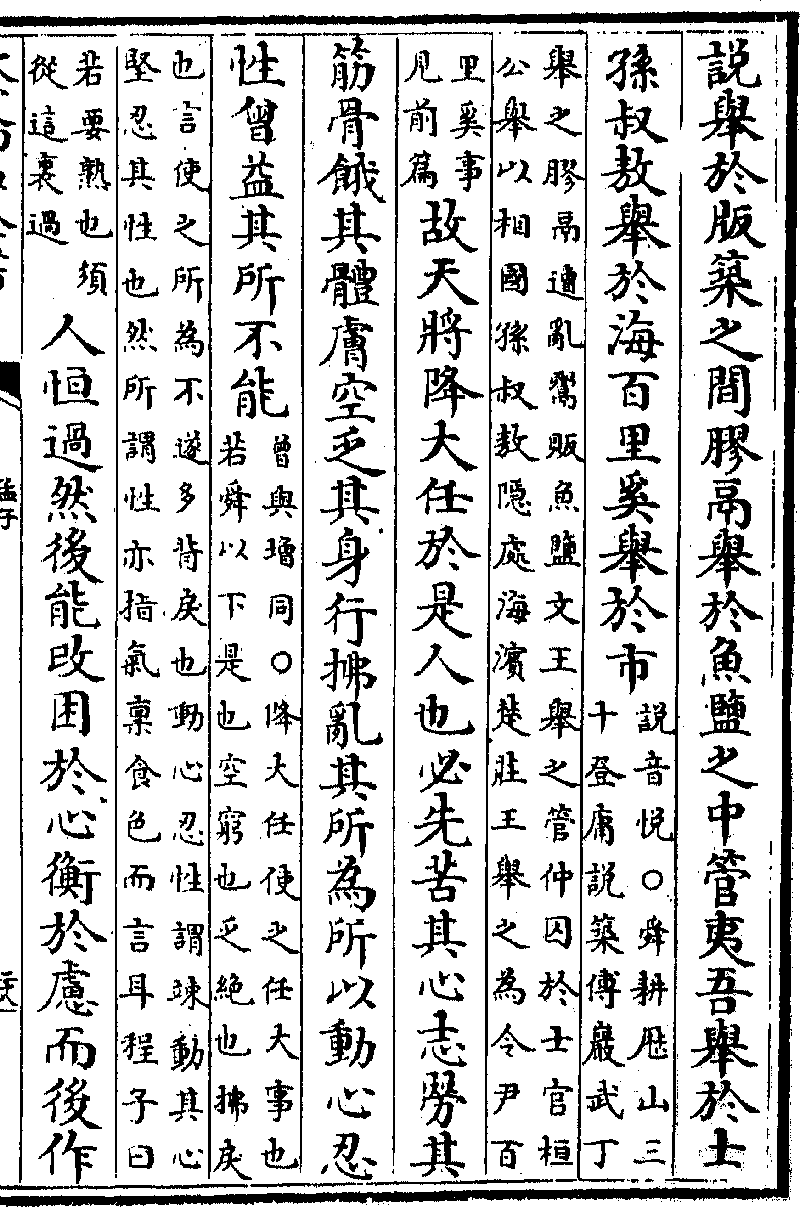 說舉於版築之間膠鬲舉於魚鹽之中管夷吾舉於士
孫叔敖舉於海百里奚舉於市
說音悅○舜耕厯山三
十登庸說築傅巖武丁
舉之膠鬲遭亂鬻販魚鹽文王舉之管仲囚於士官桓
公舉以相國孫叔敖隱處海濱楚莊王舉之為令尹百
里奚事
見前篇
故天將降大任於是人也必先苦其心志勞其
筋骨餓其體膚空乏其身行拂亂其所為所以動心忍
性曾益其所不能
曾與增同○降大任使之任大事也
若舜以下是也空窮也乏絶也拂戾
也言使之所為不遂多背戾也動心忍性謂竦動其心
堅忍其性也然所謂性亦指氣稟食色而言耳程子曰
若要熟也須
從這裏過
人恒過然後能改困於心衡於慮而後作
孟子